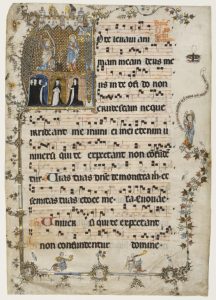 te leuaui ani
mam meam deus me
us in te confido non
erubescam neque
irrideant me inimici mei etenim u
niuersi qui te expectant non confun
dentur Uias tuas dne demonstra michi et
semitas tuas edoce me Euouae
Uniuersi qui te expectant
non confundentur domine